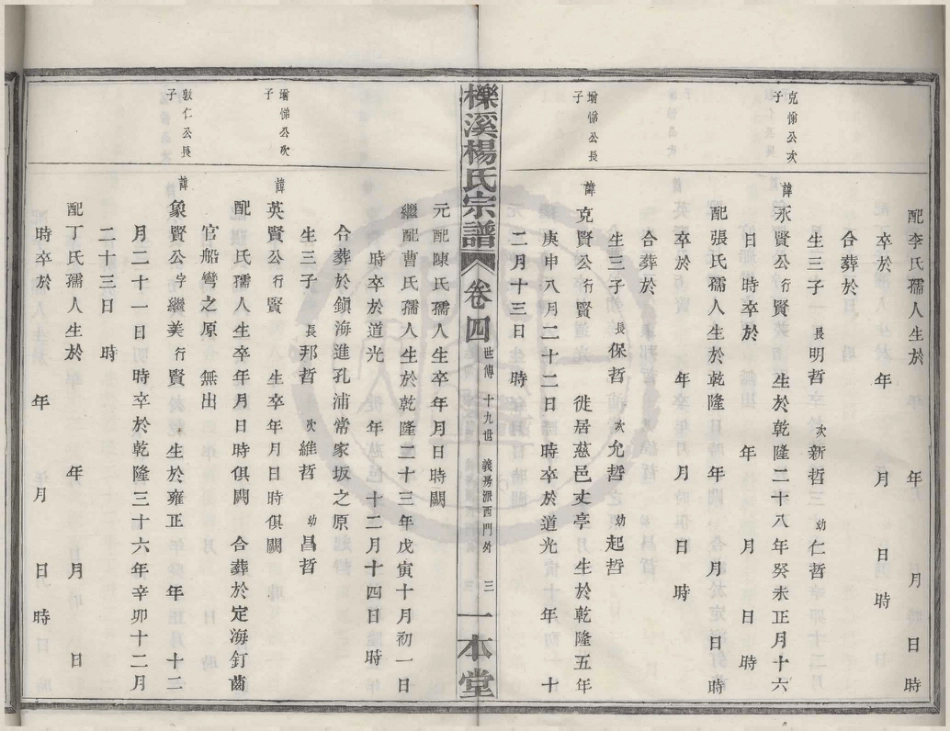 配李氏孺人生於　年　月　日　時
卒於　年　月　日　時
合葬於
生三子　長明哲　次新哲　幼仁哲
克偹公次
子
諱永賢公行賢　生於乾隆二十八年癸未正月十六
日時卒於　年　月　日　時
配張氏孺人生於乾隆　年　月　日　時
卒於　年　月　日　時
合葬於
生三子　長保哲　次允哲　幼起哲
瑜偹公長
子
諱克賢公行賢　徙居慈邑丈亭　生於乾隆五年
庚申八月二十二日　時卒於道光　十年　十
二月十三日　時
櫟溪楊氏宗譜　卷四　世傳　十九世　義房派西門外　三　一本堂
元配陳氏孺人生卒年月日時闕
繼配曹氏孺人生於乾隆二十三年戊寅十月初一日
時卒於道光　年　十二月十四日　時
合葬於鎮海進孔浦常家坂之原
生三子　長邦哲　次維哲　幼昌哲
瑜偹公次
子
諱英賢公行賢　生卒年月日時俱闕
配　氏孺人生卒年月日時俱闕　合葬於定海釘齒
官船彎之原　無出
敦仁公長
子
諱象賢公字繼美行賢　生於雍正　年　十二
月二十一日　時卒於乾隆三十六年辛卯十二月
二十三日　時
配丁氏孺人生於　年　月　日
時卒於　年　月　日　時